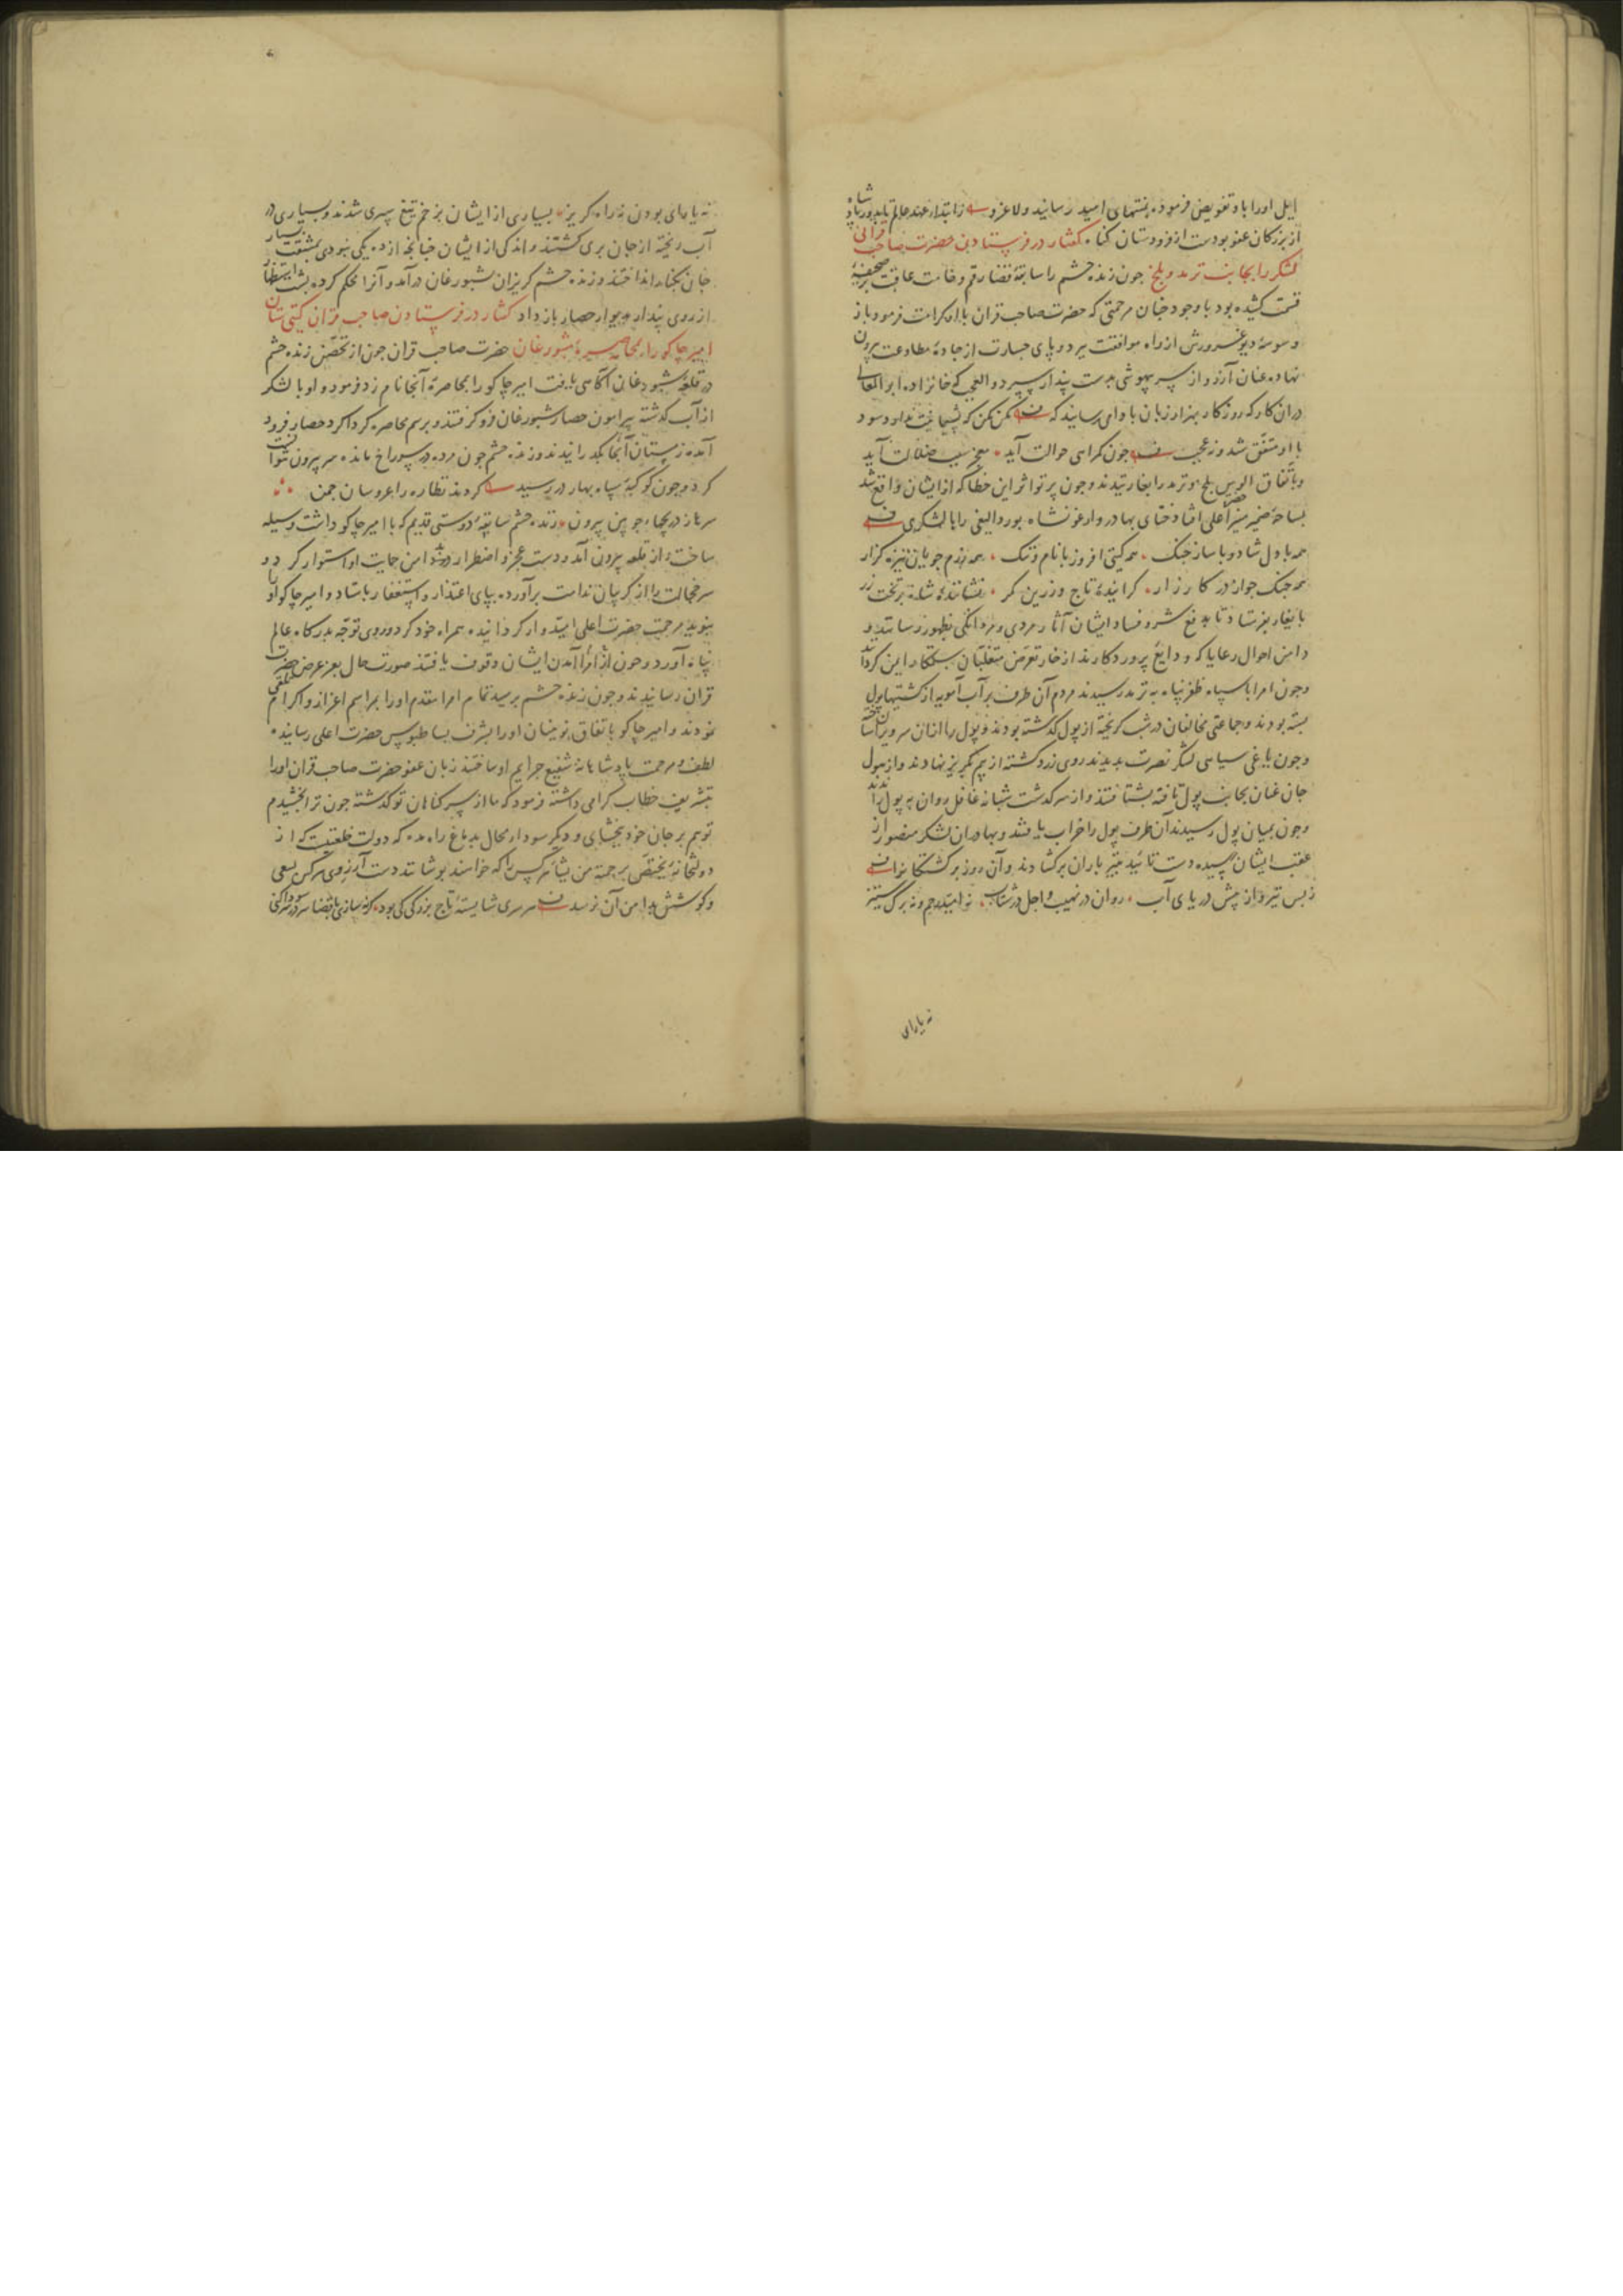 ایل اورا باو تفویض فرموده بمنتهای امید رسانید ولا غرو زابتدار عهد عالم تا بدور پادشاه
از بزرکان عفو بودست از فرودستان کناه کفتار در فرستادن حضرت صاحب قرانی
لشکر را بجانب ترمد و بلخ جون زنده حشم را سابقهٔ قضا رقم وخامت عاقبت بر صحیفهٔ
قسمت کشیده بود با وجود جنان مرحمتی که حضرت صاحب قران با او کرامت فرمود باز
وسوسهٔ دیو غرورش از راه موافقت ببرد و پای جسارت از جادهٔ مطاوعت بیرون
نهاده عنان آرزو از سر بیهوشی بدست پندار سپرد و العجب که خانزاده ابو المعالی
دران کار که روزکار بهزار زبان با وادی می رسانید که مکن مکن که پشیمانیت ندارد سود
با او متفق شد وز عجب جون کمراهی حوالت آید بعجز سبب ضلالت آید
وباتفاق الوس بلخ و ترمد را بغارتیدند و جون پرتو اثر این خطا که از ایشان واقع شد
بساحهٔ ضمیر منیر حضرت اعلی افتاد ختای بهادر و ارغونشاه بوردالیغی را با لشکری
همه با دل شاد و با ساز جنک همه کیتی افروز با نام و ننک همه رزم جویان نیزه کزار
همه جنک جوان در کارزار کرایندهٔ تاج و زرین کمر نشانندهٔ شاه بر تخت زر
بایلغار بفرستاد تا بدفع شر و فساد ایشان آثار مردی و مردانکی بظهور رسانند و
دامن احوال رعایا که ودایع پروردکارند از خار تعرض متغلبان ستمکار ایمن کردانند
وجون امرا با سپاه ظفر پناه به ترمد رسیدند مردم آن طرف بر آب آمویه از کشتیها پول
بسته بودند و جماعتی مخالفان در شب کریخته از پول کذشته بودند و پول را ازان سر ویران ساخته
وجون یاغی سیاهی لشکر نصرت بدیدند روی زرد کشته از بیم بکریز نهادند و از هول
جان عنان بجانب پول تافته بشتافتند و از سرکذشت شبانه غافل روان به پول راندند
وجون بمیان پول رسیدند آن طرف پول را خراب یافتند و بهادران لشکر منصور از
عقب ایشان رسیده دست تائید بتیر باران برکشادند و آن روز برکشتکانرا
ز پس تیر و از پیش دریای آب روان در نهیب و اجل در شتاب نه امید رحم و نه برک ستیز
نه یارای
نه یارای بودن نه راه کریز بسیاری از ایشان بزخم تیغ سپری شدند و بسیاری در
آب ریخته از جان بری کشتند و اندکی از ایشان جنانجه از ده یکی نبودی بمشقت بسیار
جان بکنار انداختند و زنده حشم کریزان بشبورغان درآمد و آنرا محکم کرده پشت استظهار
از روی پندار بدیوار حصار باز داد کفتار در فرستادن صاحب قران کیتی ستان
امیر جاکو را بمحاصرهٔ شبورغان حضرت صاحب قران جون از تحصن زنده حشم
در قلعهٔ شبورغان آکاهی یافت امیر جاکو را بمحاصرهٔ آنجا نام زد فرمود و او با لشکر
از آب کذشته پیرامون حصار شبورغان فرو کرفتند و برسم محاصره کرداکرد حصار فرود
آمده زمستان آنجا بکذرانیدند و زنده حشم جون مرده در سوراخ مانده سر بیرون نتوانست
کرد و جون کوکبهٔ سپاه بهار در رسید کردند نظاره را عروسان جمن
سرها ز دریجهاء جوبین بیرون زنده حشم سابقهٔ دوستی قدیم که با امیر جاکو داشت وسیله
ساخت و از قلعه بیرون آمد و دست عجز و اضطرار در دامن حمایت او استوار کرد و
سر خجالت را از کریبان ندامت برآورده بپای اعتذار و استغفار باستاد و امیر جاکو او را
بنوید مرحمت حضرت اعلی امیدوار کردانیده همراه خود کرد و روی توجه بدرکاه عالم
پناه آورد و جون امرا از آمدن ایشان وقوف یافتند صورت حال بعز عرض حضرت صاحب
قران رسانیدند و جون زنده حشم برسید تمام امرا مقدم اورا بمراسم اعزاز و اکرام تلقی
نمودند و امیر جاکو باتفاق نوینان اورا بشرف بساط بوس حضرت اعلی رسانیده
لطف و مرحمت پادشاهانه شفیع جرایم او ساختند زبان عفو حضرت صاحب قران اورا
بتشریف خطاب کرامی داشته فرمود که ما از سر کناهان تو کذشته جون ترا بخشیدم
تو هم بر جان خود ببخشای و دیکر سوداء محال بدماغ راه مده که دولت خلعتیست که از
دولتخانهٔ یختص برحمته من یشاء هر کس را که خواهند بوشانند دست آرزوی هر کس بسعی
وکوشش بدامن آن نرسد هر سری شایستهٔ تاج بزرکی کی بود کر نه سازی با قضا سر در سر سودا کنی